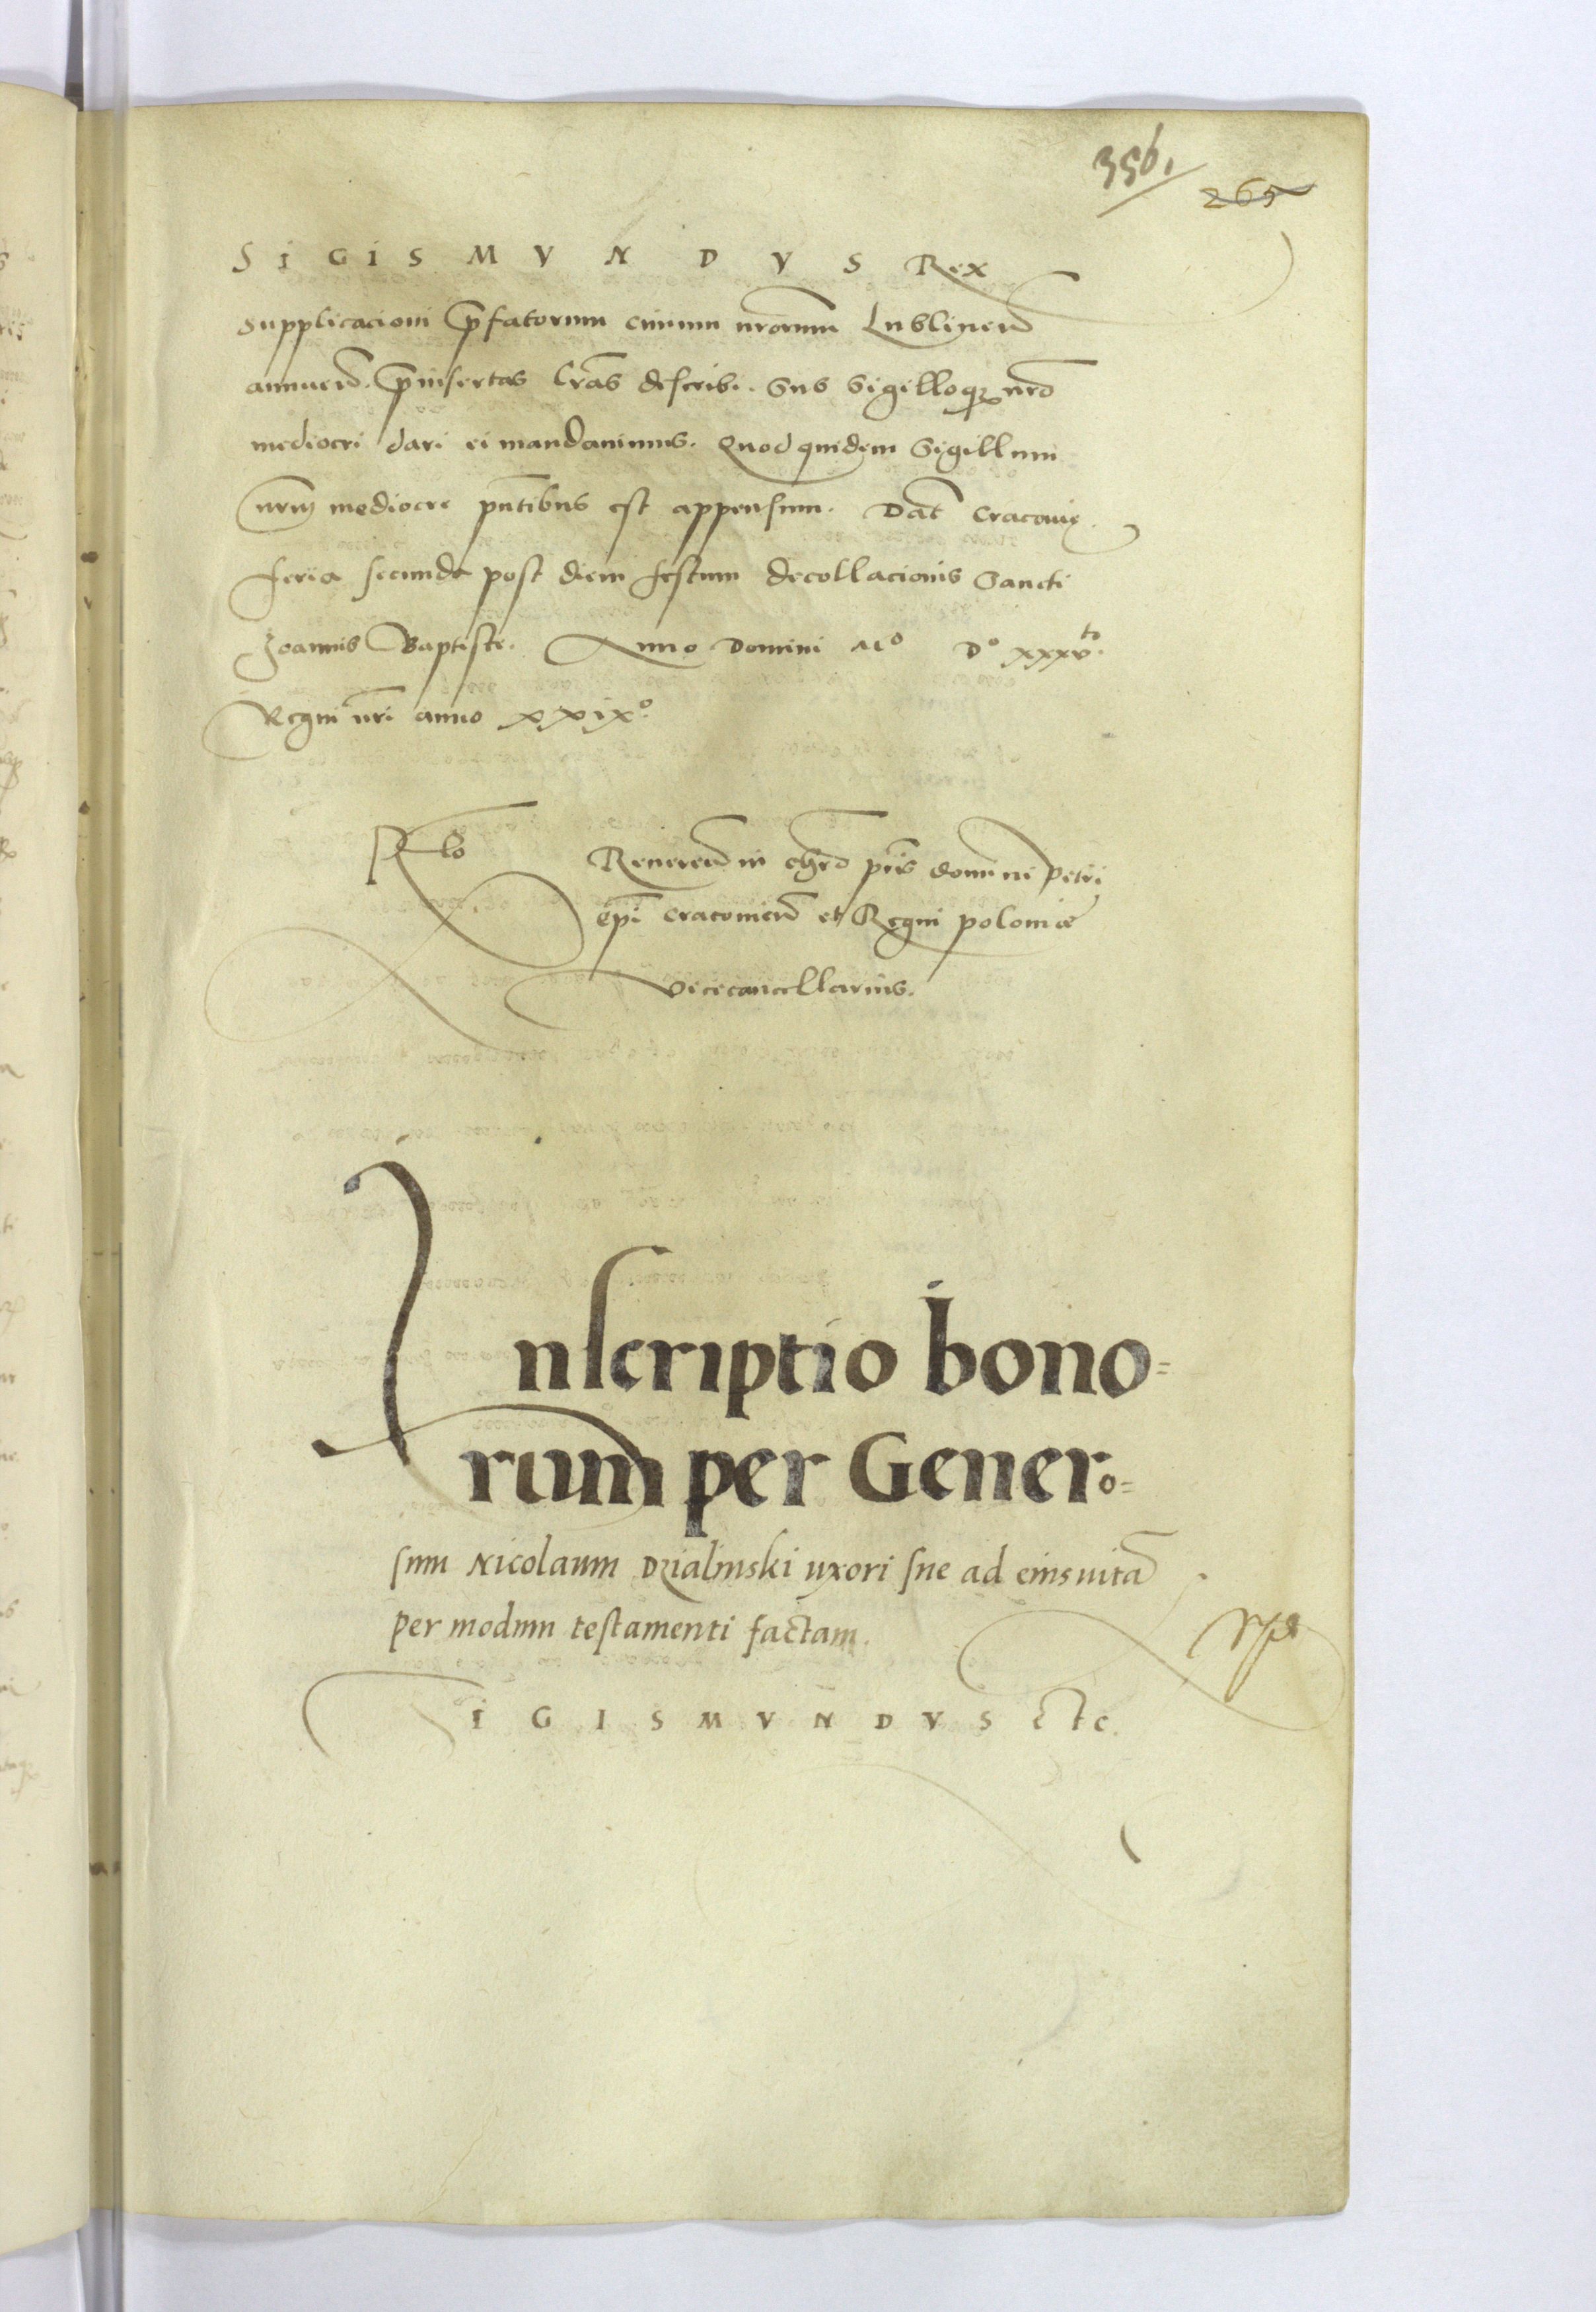 356.
265
SIGISMVNDVS Rex
supplicacioni p̄fatorum ciuium nrorum Lublinen̄
annuen̄. p̄insertas l̄ras describi. Sub Sigilloq3 nr̄o
mediocri dari ei mandauimus. Quod quidem Sigillum
nrm̄ mediocre pn̄tibus est appensum. Dat̄ Cracouię.
feria secunda post diem festum decollacionis Sancti
Joannis Baptiste. Anno Domini Mº Dº xxxvto.
Regni nr̄i anno xxixº.
Rlo Reueren̄ in chr̄o pr̄is domini Petri
ep̄i Cracouien̄ et Regni poloniæ
vicecancellarius.
Inscriptio bono=
rum per Genero=
sum Nicolaum Dzialinski uxori sue ad eius uitā
per modum testamenti factam.
IGISMVNDVS etc.